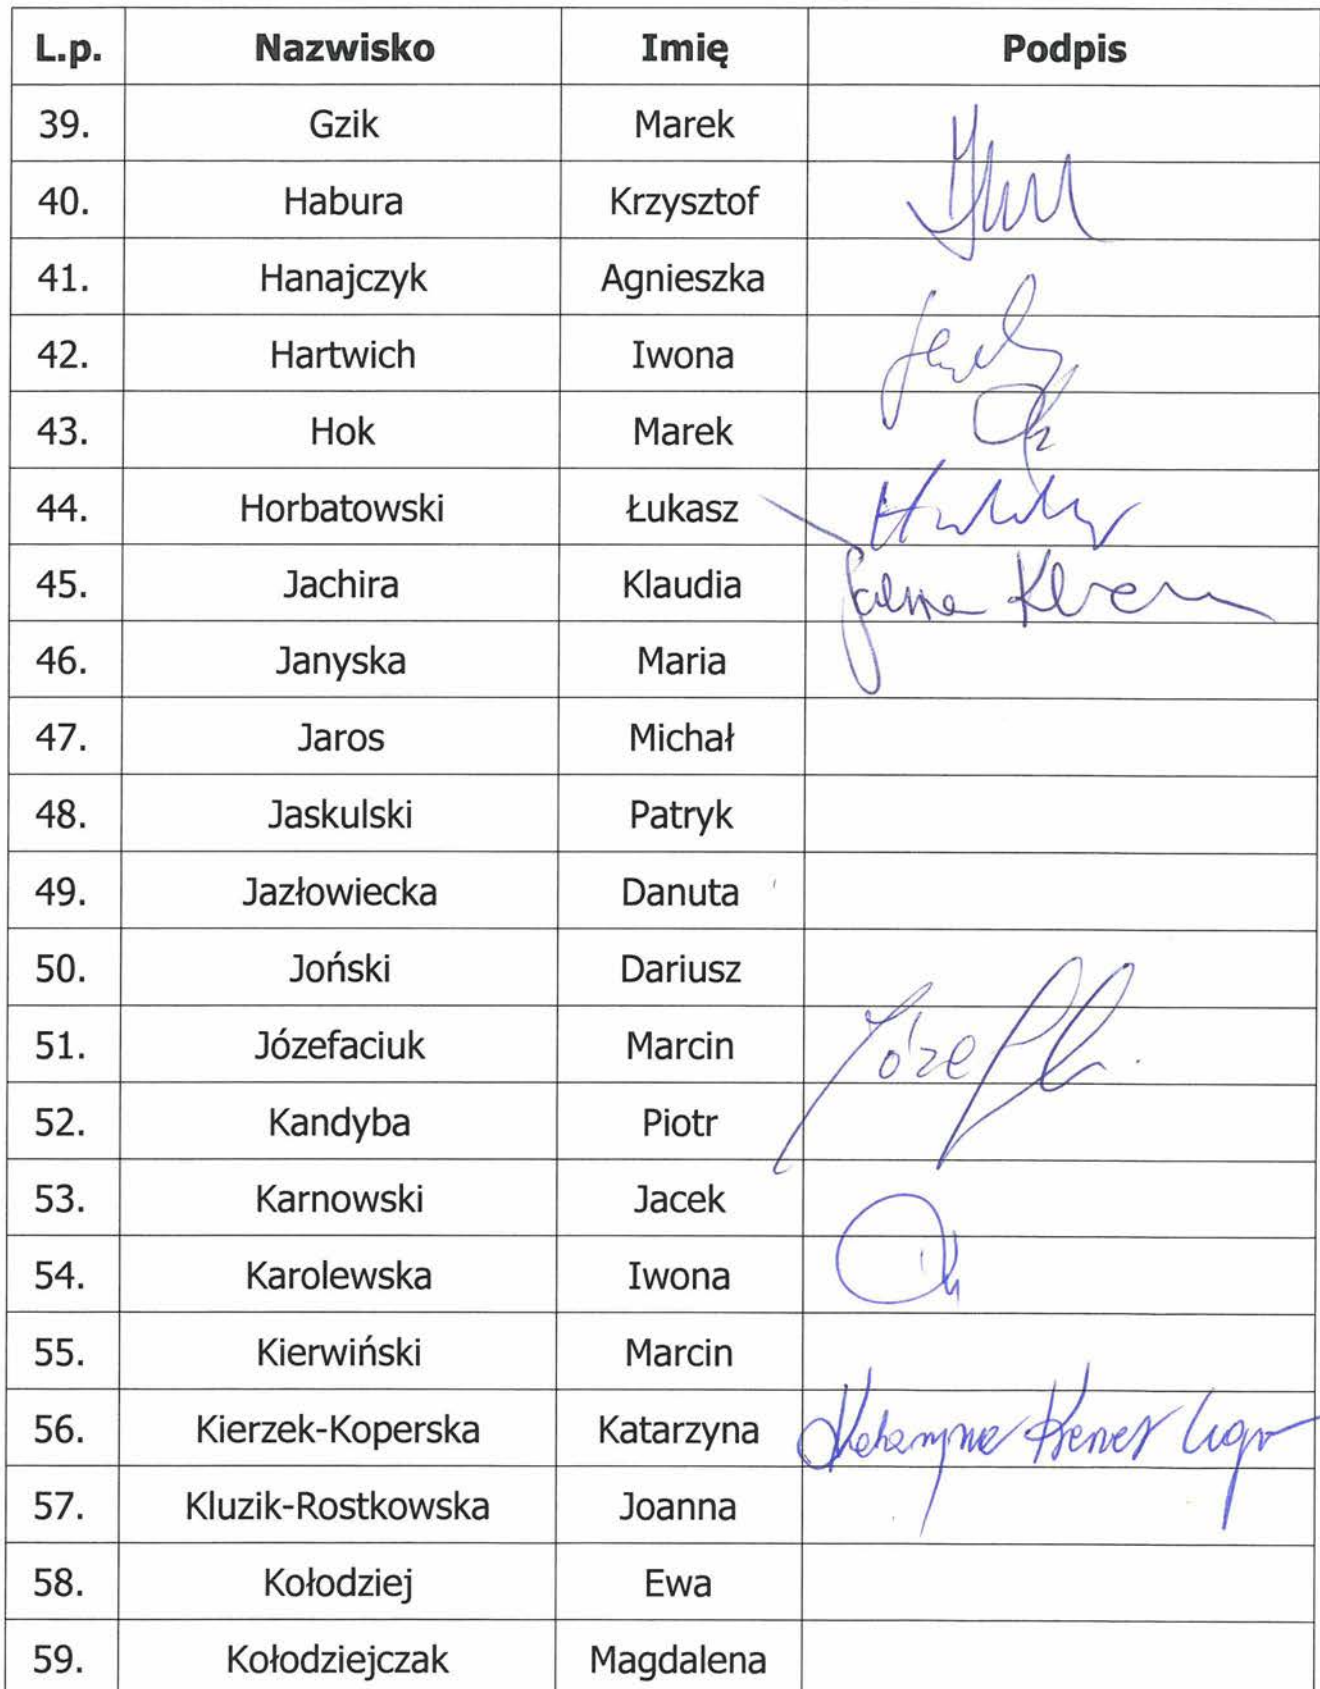 L.p. Nazwisko Imię Podpis
39. Gzik Marek
40. Habura Krzysztof
41. Hanajczyk Agnieszka
42. Hartwich Iwona
43. Hok Marek
44. Horbatowski Łukasz
45. Jachira Klaudia
46. Janyska Maria
47. Jaros Michał
48. Jaskulski Patryk
49. Jazłowiecka Danuta
50. Joński Dariusz
51. Józefaciuk Marcin
52. Kandyba Piotr
53. Karnowski Jacek
54. Karolewska Iwona
55. Kierwiński Marcin
56. Kierzek-Koperska Katarzyna
57. Kluzik-Rostkowska Joanna
58. Kołodziej Ewa
59. Kołodziejczak Magdalena